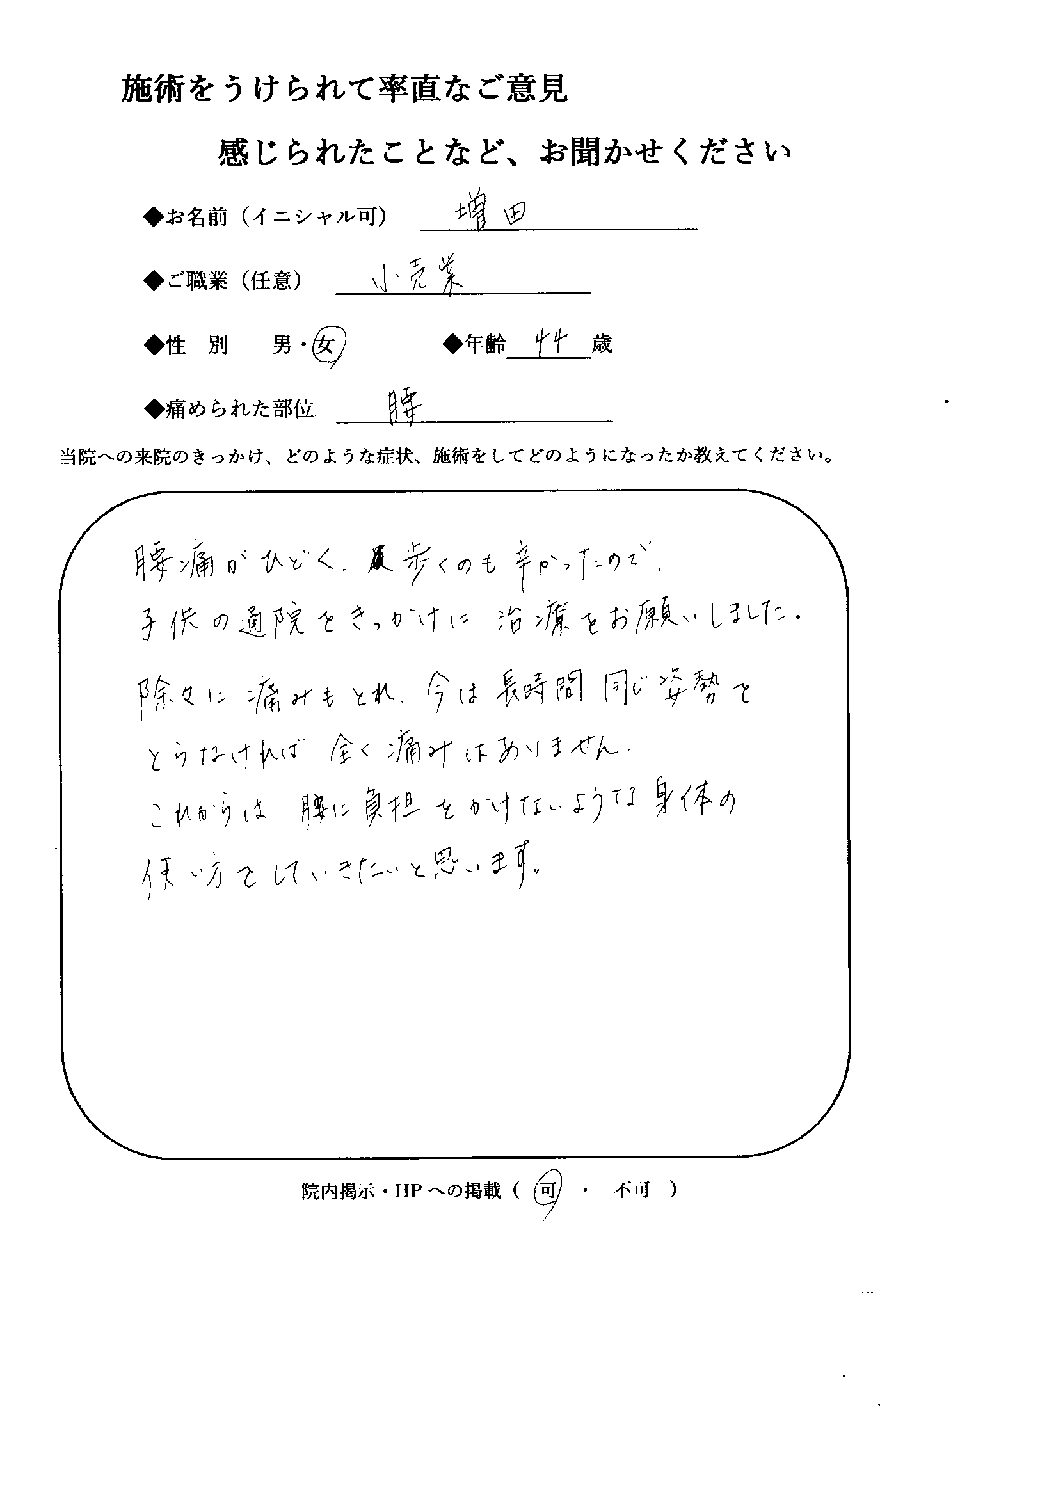 施術をうけられて率直なご意見
感じられたことなど、お聞かせください
◆お名前（イニシャル可） 増田
◆ご職業（任意） 小売業
◆性 別 男・女 ◆年齢 44 歳
◆痛められた部位 腰
当院への来院のきっかけ、どのような症状、施術をしてどのようになったか教えてください。
腰痛がひどく、歩くのも辛かったので、
子供の通院をきっかけに 治療をお願いしました。
除々に痛みもとれ、今は長時間同じ姿勢を
とらなければ 全く痛みはありません。
これからは 腰に負担をかけないような身体の
使い方をしていきたいと思います。
院内掲示・HPへの掲載（ 可 ・ 不可 ）